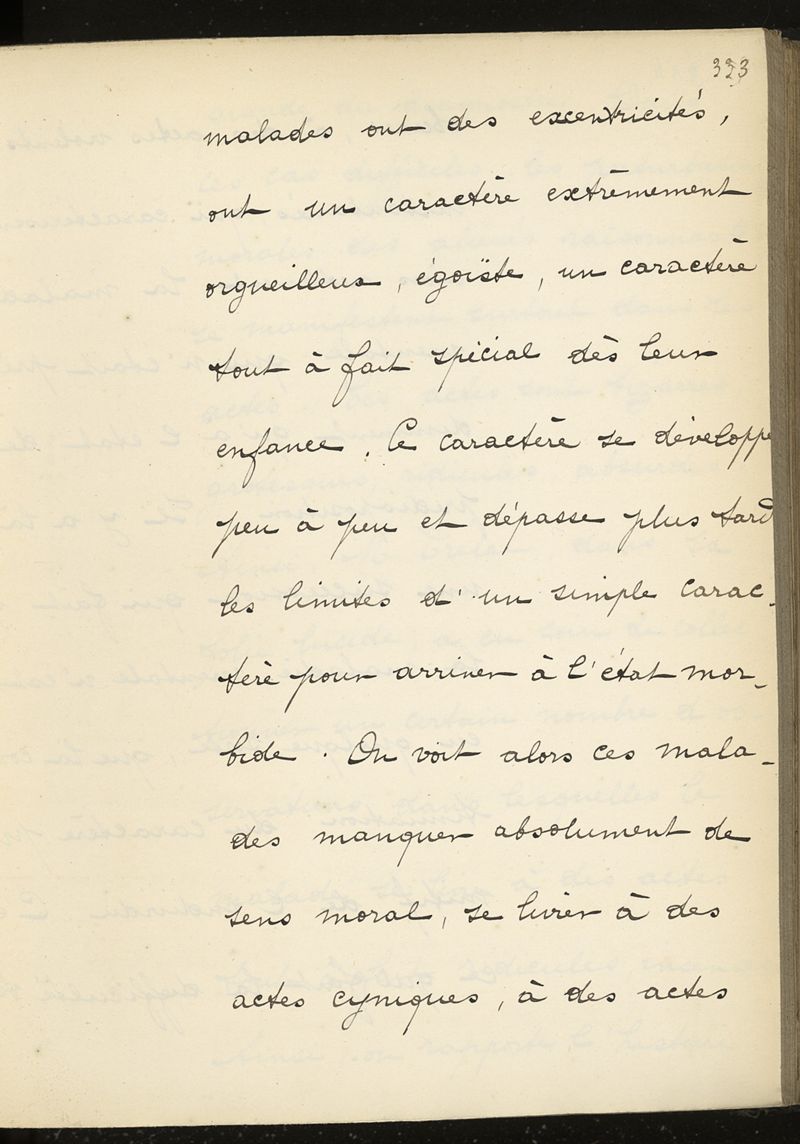 323
malades ont des excentricités,
ont un caractère extrêmement
orgueilleux, égoïste, un caractère
tout à fait spécial dès leur
enfance. Ce caractère se développe
peu à peu et dépasse plus tard
les limites d'un simple carac-
tère pour arriver à l'état mor-
bide. On voit alors ces mala-
des manquer absolument de
sens moral, se livrer à des
actes cyniques, à des actes